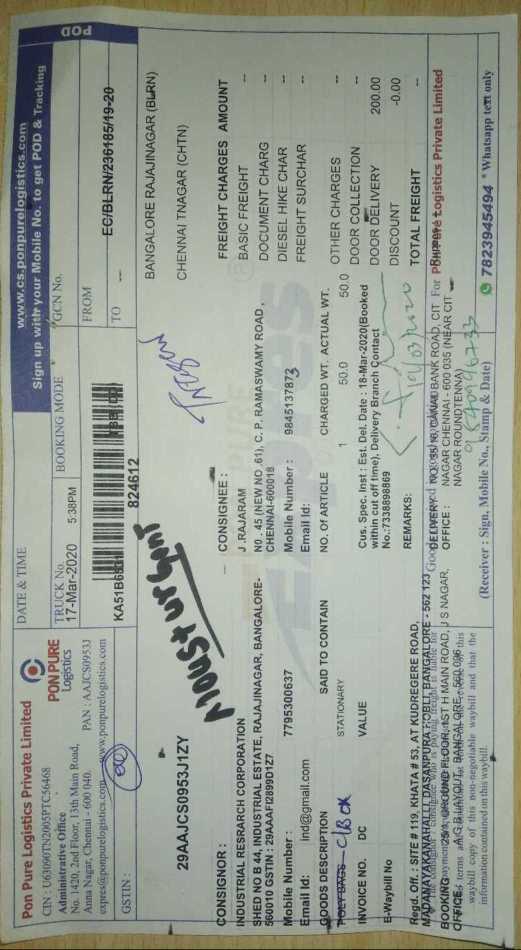 Pon Pure Logistics Private Limited
CIN : U63090TN2005PTC56468
Administrative Office
No. 1420, 2nd Floor, 13th Main Road,
Anna Nagar, Chennai - 600 040. PAN : AAJCS0953J
express@ponpurelogistics.com www.ponpurelogistics.com
PON PURE
Logistics
GSTIN :
29AAJCS0953J1ZY
DATE & TIME
17-Mar-2020 5:38PM
TRUCK No.
KA51B6531
BOOKING MODE
TBB
824612
www.cs.ponpurelogistics.com
Sign up with your Mobile No. to get POD & Tracking
POD
GCN No.
EC/BLRN/236185/19-20
FROM
BANGALORE RAJAJINAGAR (BLRN)
TO
CHENNAI TNAGAR (CHTN)
Most urgent
CONSIGNOR :
INDUSTRIAL RESRARCH CORPORATION
SHED NO B 44, INDUSTRIAL ESTATE, RAJAJINAGAR, BANGALORE-
560010 GSTIN : 29AAAFI2899D1Z7
Mobile Number : 7795300637
Email Id: ind@gmail.com
CONSIGNEE :
J .RAJARAM
NO . 45 (NEW NO .61), C. P. RAMASWAMY ROAD ,
CHENNAI-600018
Mobile Number : 9845137873
Email Id:
FREIGHT CHARGES AMOUNT
BASIC FREIGHT --
DOCUMENT CHARG --
DIESEL HIKE CHAR --
FREIGHT SURCHAR --
OTHER CHARGES --
DOOR COLLECTION --
DOOR DELIVERY 200.00
DISCOUNT -0.00
TOTAL FREIGHT
GOODS DESCRIPTION SAID TO CONTAIN NO. Of ARTICLE CHARGED WT. ACTUAL WT.
POLY BAGS STATIONARY 1 50.0 50.0
INVOICE NO. DC VALUE
E-Waybill No
Cus. Spec. Inst : Est. Del. Date : 18-Mar-2020(Booked
within cut off time), Delivery Branch Contact
No.:7338898869
REMARKS:
19/03/2020
Regd. Off. : SITE # 119, KHATA # 53, AT KUDREGERE ROAD,
MADANAYAKANAHALLI, DASANPURA HOBLI, BANGALORE - 562 123
BOOKING OFFICE : GROUND FLOOR, 1ST H MAIN ROAD, J S NAGAR,
BANGALORE - 560 096
DELIVERY OFFICE : CANAD BANK ROAD, CIT
NAGAR CHENNAI - 600 035 (NEAR CIT
NAGAR ROUNDTENNA)
For Pon Pure Logistics Private Limited
waybill copy of this non-negotiable waybill and that the
information contained on this waybill.
(Receiver : Sign, Mobile No., Stamp & Date)
7823945494 * Whatsapp text only